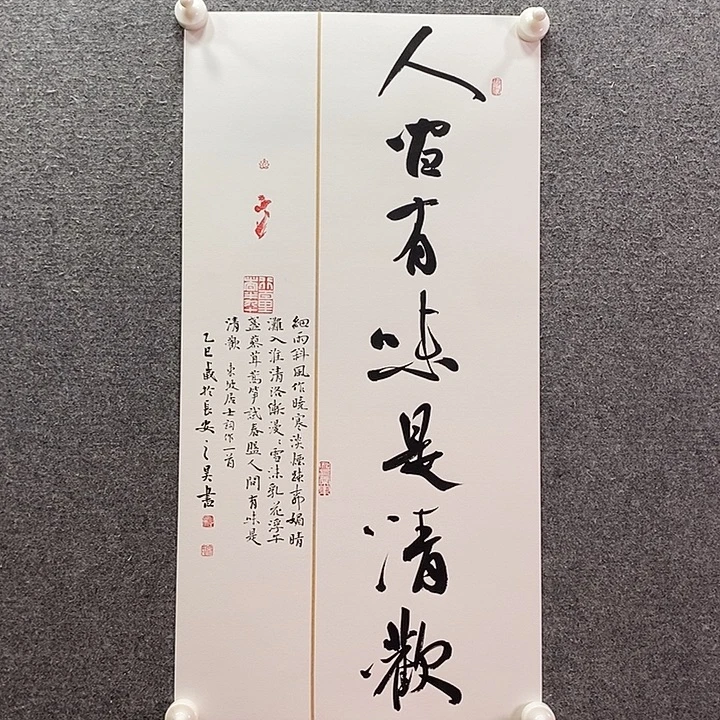 人間有味是清歡
細雨斜風作曉寒淡煙疎柳媚晴
灘入淮清洛漸漫〻雪沫乳花浮午
盞蓼茸蒿筍試春盤人間有味是
清歡 東坡居士詞作一首
乙巳歲於長安之昊書